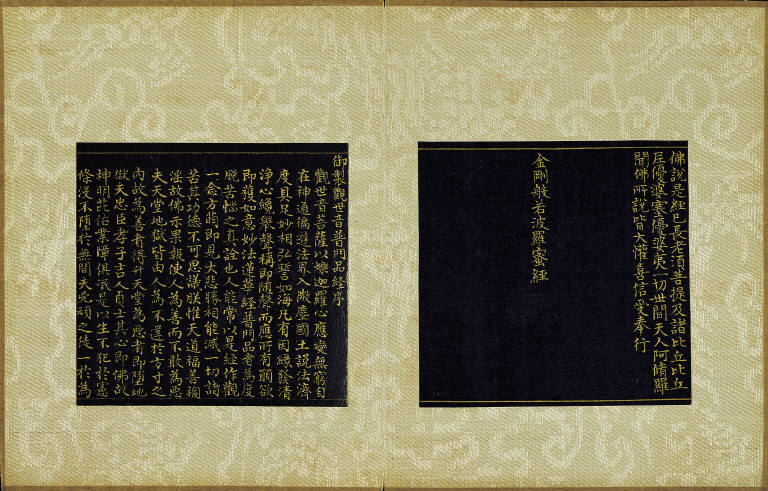 佛說是經已長老須菩提及諸比丘比丘
尼優婆塞優婆夷一切世間天人阿脩羅
聞佛所說皆大懽喜信受奉行
金剛般若波羅蜜經
御製觀世音普門品經序
觀世音菩薩以爍迦羅心應變無窮自
在神通徧遊法界入微塵國土說法濟
度具足妙相弘誓如海凡有因緣發清
淨心纔舉聲稱即随聲而應所有願欲
即獲如意妙法蓮華經普門品者為度
脫苦惱之真詮也人能常以是經作觀
一念方萌即見大悲勝相能滅一切諸
苦其功德不可思議朕惟天道福善禍
淫故佛示果報使人為善而不敢為惡
夫天堂地獄皆由人為不違於方寸之
內故為善者得升天堂為惡者即墮地
獄夫忠臣孝子吉人貞士其心即佛故
神明芘佑業障俱泯是以生不犯於憲
條沒不墮於無間夫兇頑之徒一於為